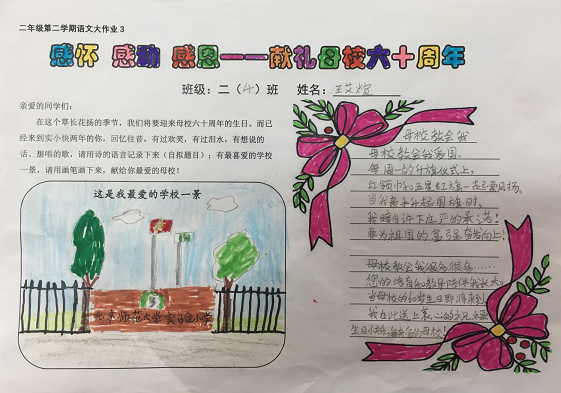 二年级第二学期语文大作业3
感怀 感动 感恩——献礼母校六十周年
班级：二（4）班 姓名：王艾煊
亲爱的同学们：
在这个草长花扬的季节，我们将要迎来母校六十周年的生日。而已
经来到实小快两年的你，回忆往昔，有过欢笑，有过泪水，有想说的
话、想唱的歌，请用诗的语言记录下来（自拟题目）；有最喜爱的学校
一景，请用画笔画下来，献给你最爱的母校！
这是我最爱的学校一景
北京师范大学实验小学
母校教会我
母校教会我爱国。
每周一的升旗仪式上，
红领巾和五星红旗一起迎风扬。
当我乘升起国旗时，
我暗自许下庄严的承诺：
要为祖国的富强奋发向上！
母校教会我很多很多……
您的培育和教导陪伴我长大。
当母校的和诞生日即将来到，
我在此送上衷心的祝福
生日快乐，亲爱的母校！